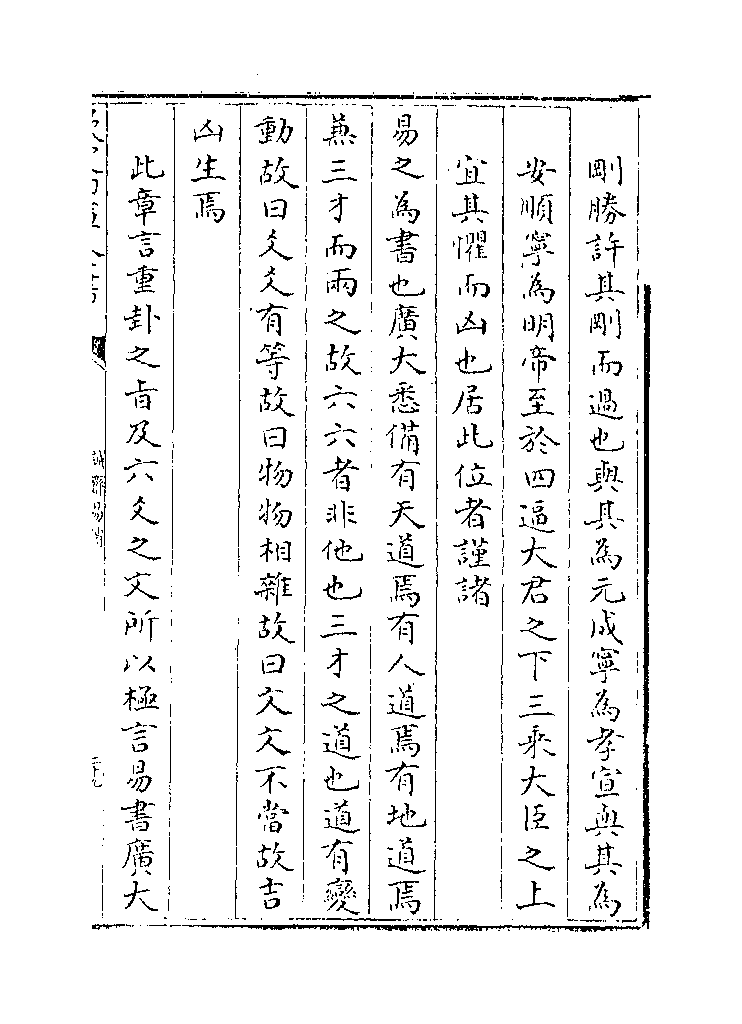 剛勝許其剛而過也與其為元成寧為孝宣與其為
安順寧為明帝至於四逼大君之下三乘大臣之上
宜其懼而凶也居此位者謹諸
易之為書也廣大悉備有天道焉有人道焉有地道焉
兼三才而兩之故六六者非他也三才之道也道有變
動故曰爻爻有等故曰物物相雜故曰文文不當故吉
凶生焉
此章言重卦之㫖及六爻之文所以極言易書廣大
誠齋易傳